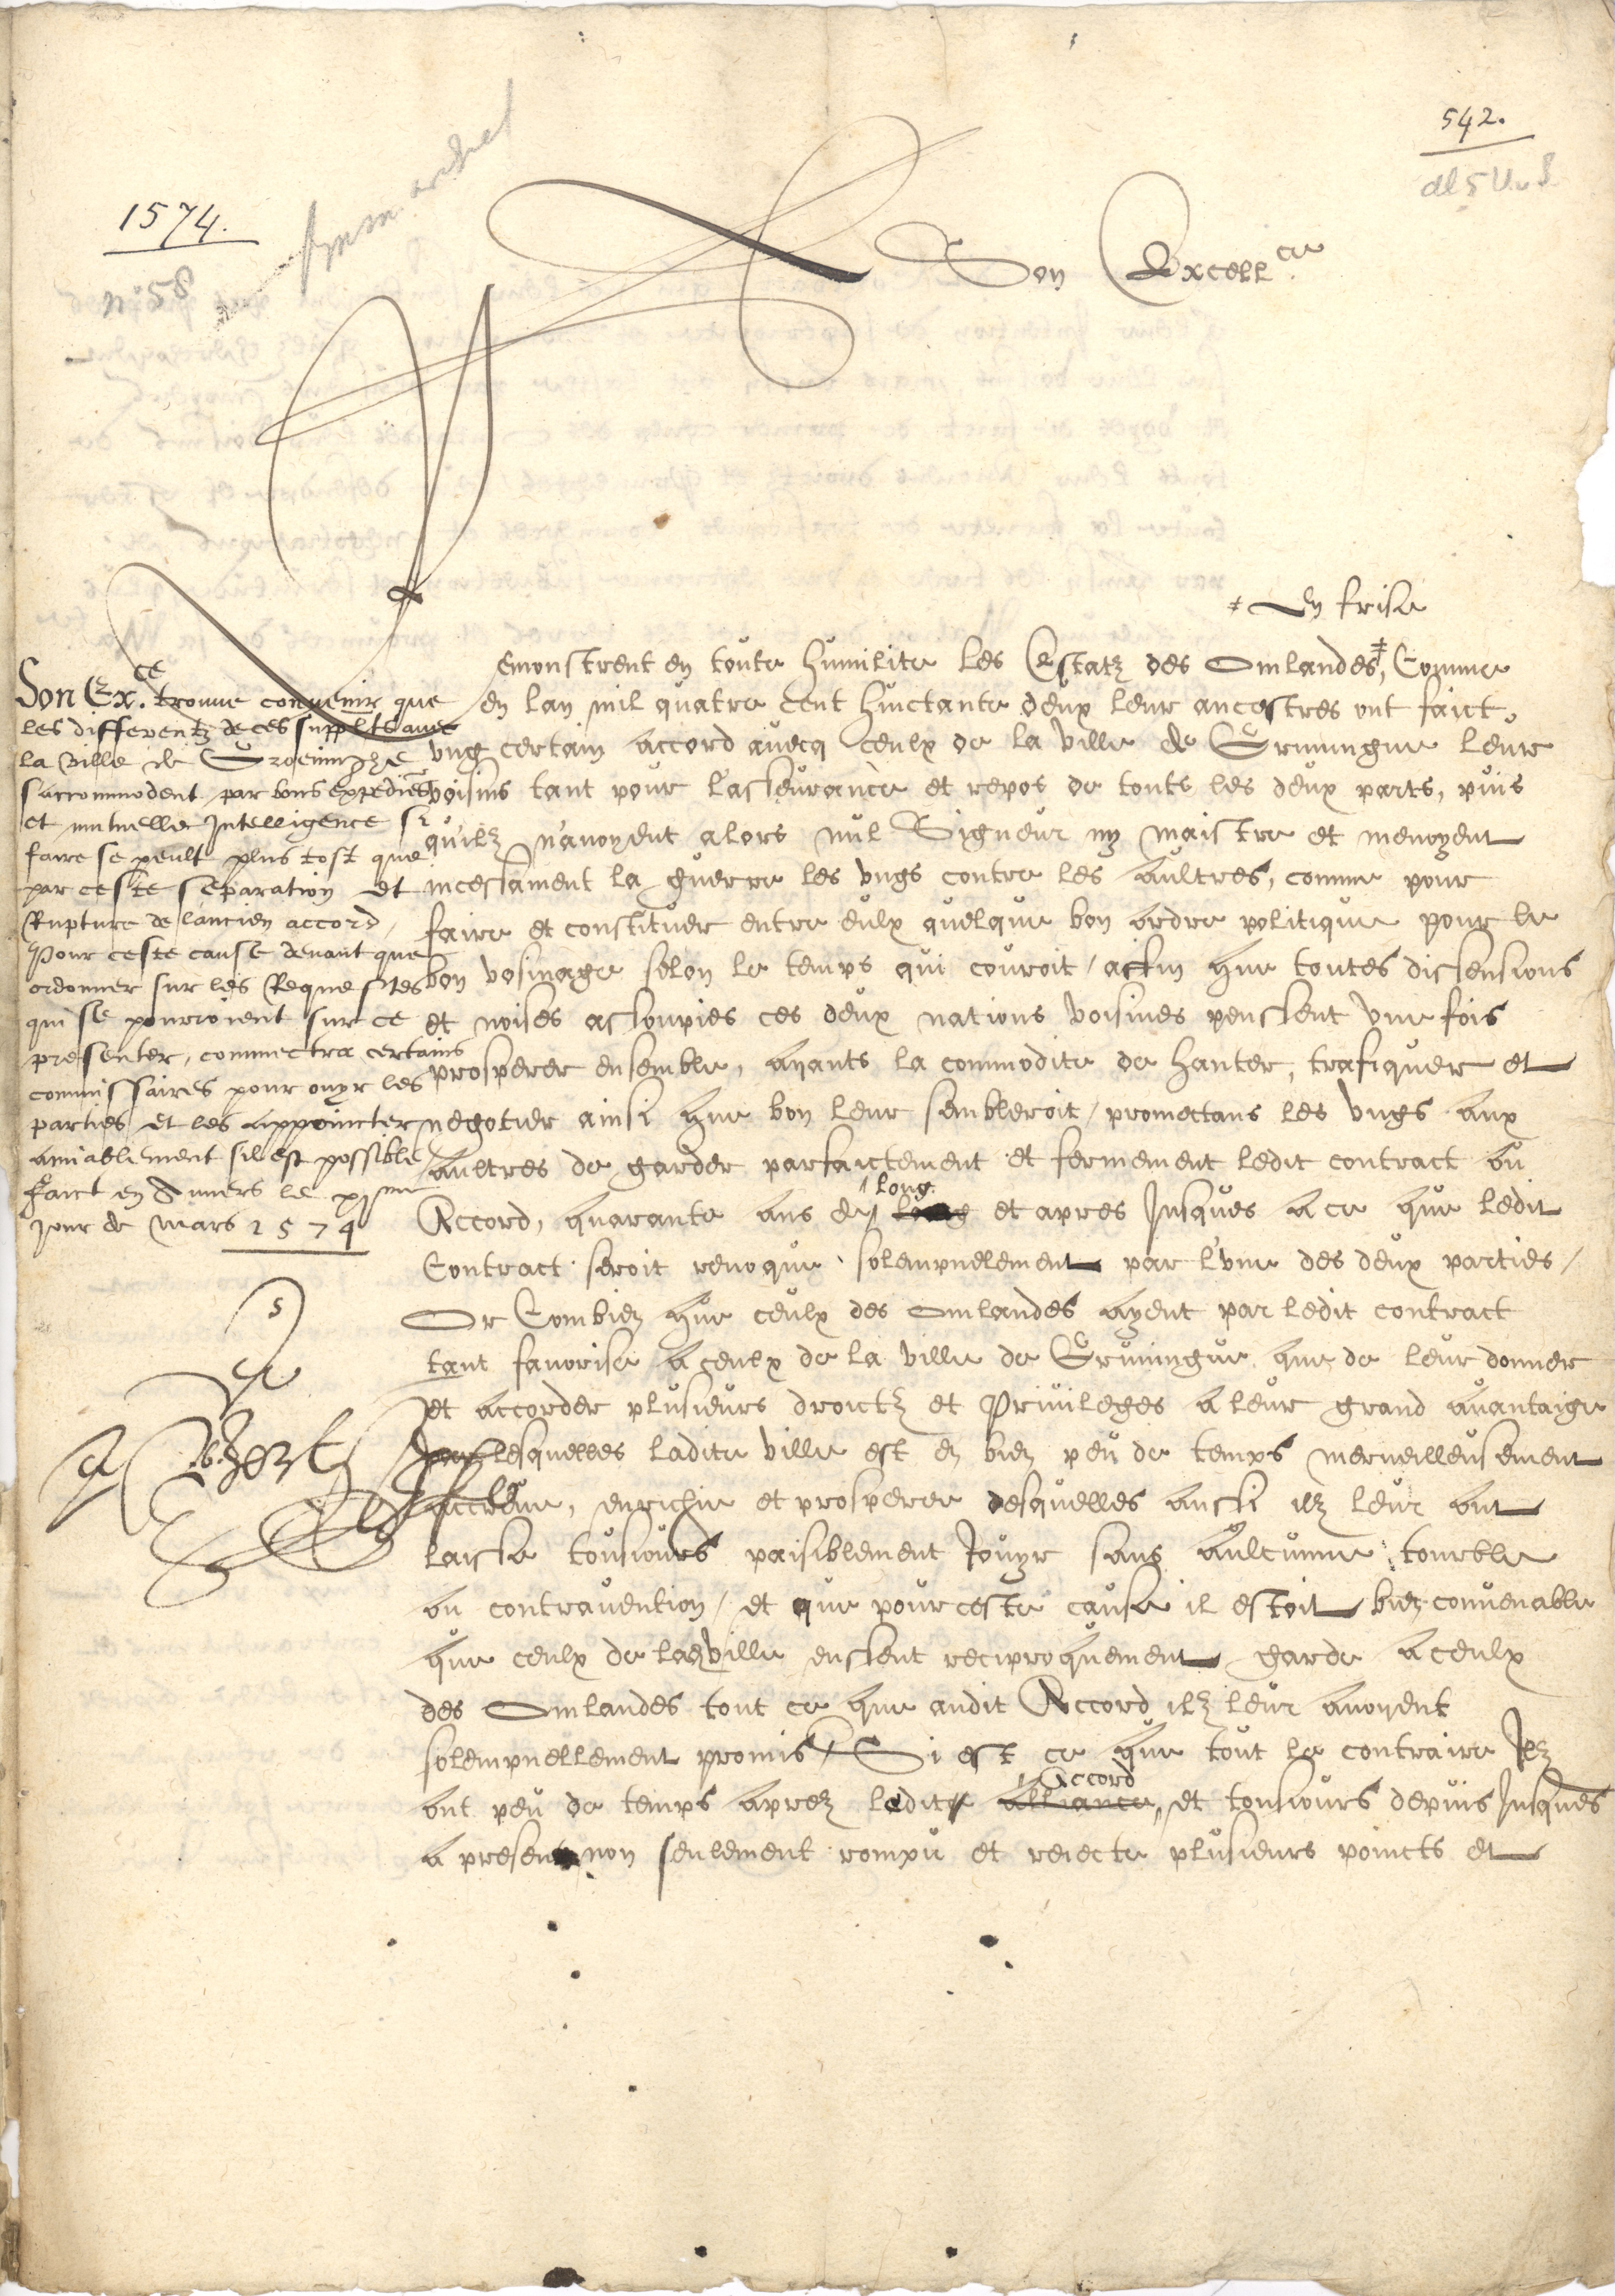 542.
1574.
n° 58
A Son Excell.ce
‡ En frise
Remonstrent en toute humilite les Estatz des Omlandes‡, Comme
en lan mil quatre cent huictante deux leur ancestres ont faict
ung certain accord avecq ceulx de la ville de Gruningue leur
voisins tant pour l'asseurance et repos de touts les deux parts, puis
quilz n'avoyent alors nul Signeur ny maistre et menoyent
incessament la guerre les ungs contre les aultres, comme pour
faire et constituer entre eulx quelque bon ordre politique pour le
bon vosinage selon le temps qui couroit / affin que toutes dissensions
et noises assoupies ces deux nations voisines peussent une fois
prosperer ensemble, ayants la commodite de hanter, trafiquer et
negotier ainsi que bon leur sembleroit / promectans les ungs aux
aultres de garder parfaictement et fermement ledit contract ou
Accord, quarante ans de long et apres Jusques a ce que ledit
Contract seroit revoque solempnelement par l'une des deux parties /
Or Combien que ceulx des Omlandes ayent par ledit contract
tant favorise a ceulx de la ville de Gruningue, que de leur donner
et accorder plusieurs droictz et Privileges a leur grand avantaige
lesquelles ladite ville est en bien peu de temps merveilleusement
accreue, enrichie et prosperee desquelles aussi ilz leur ont
laisse tousiours paisiblement Jouyr sans aultcunne tourble
ou contravention / et que pour ceste cause il estoit bien convenable
que ceulx de la ville eussent reciproquement garde a ceulx
des Omlandes tout ce que audit Accord ilz leur avoyent
solempnellement promis / Si est ce que tout le contraire Ilz
ont peu de temps aprez ledit alliance Accord et tousiours depuis Jusques
a present non seulement rompu et reiecte plusieurs poincts et
Son Ex.ce trouve convenir que
les differentz de ces supplts avec
la ville de Groeninghe
s'accommodent par bons expediens
et mutuelle Intelligence si
faire se peult plus tost que
par ceste separation et
Rupture de l'ancien accord,
Pour ceste cause devant que
ordonner sur les Requestes
qui se pourroient sur ce
presenter, commectra certains
commissaires pour ouyr les
parties et les appoincter
amiablement sil est possible
Faict en Anvers le xjme
Jour de Mars 1574